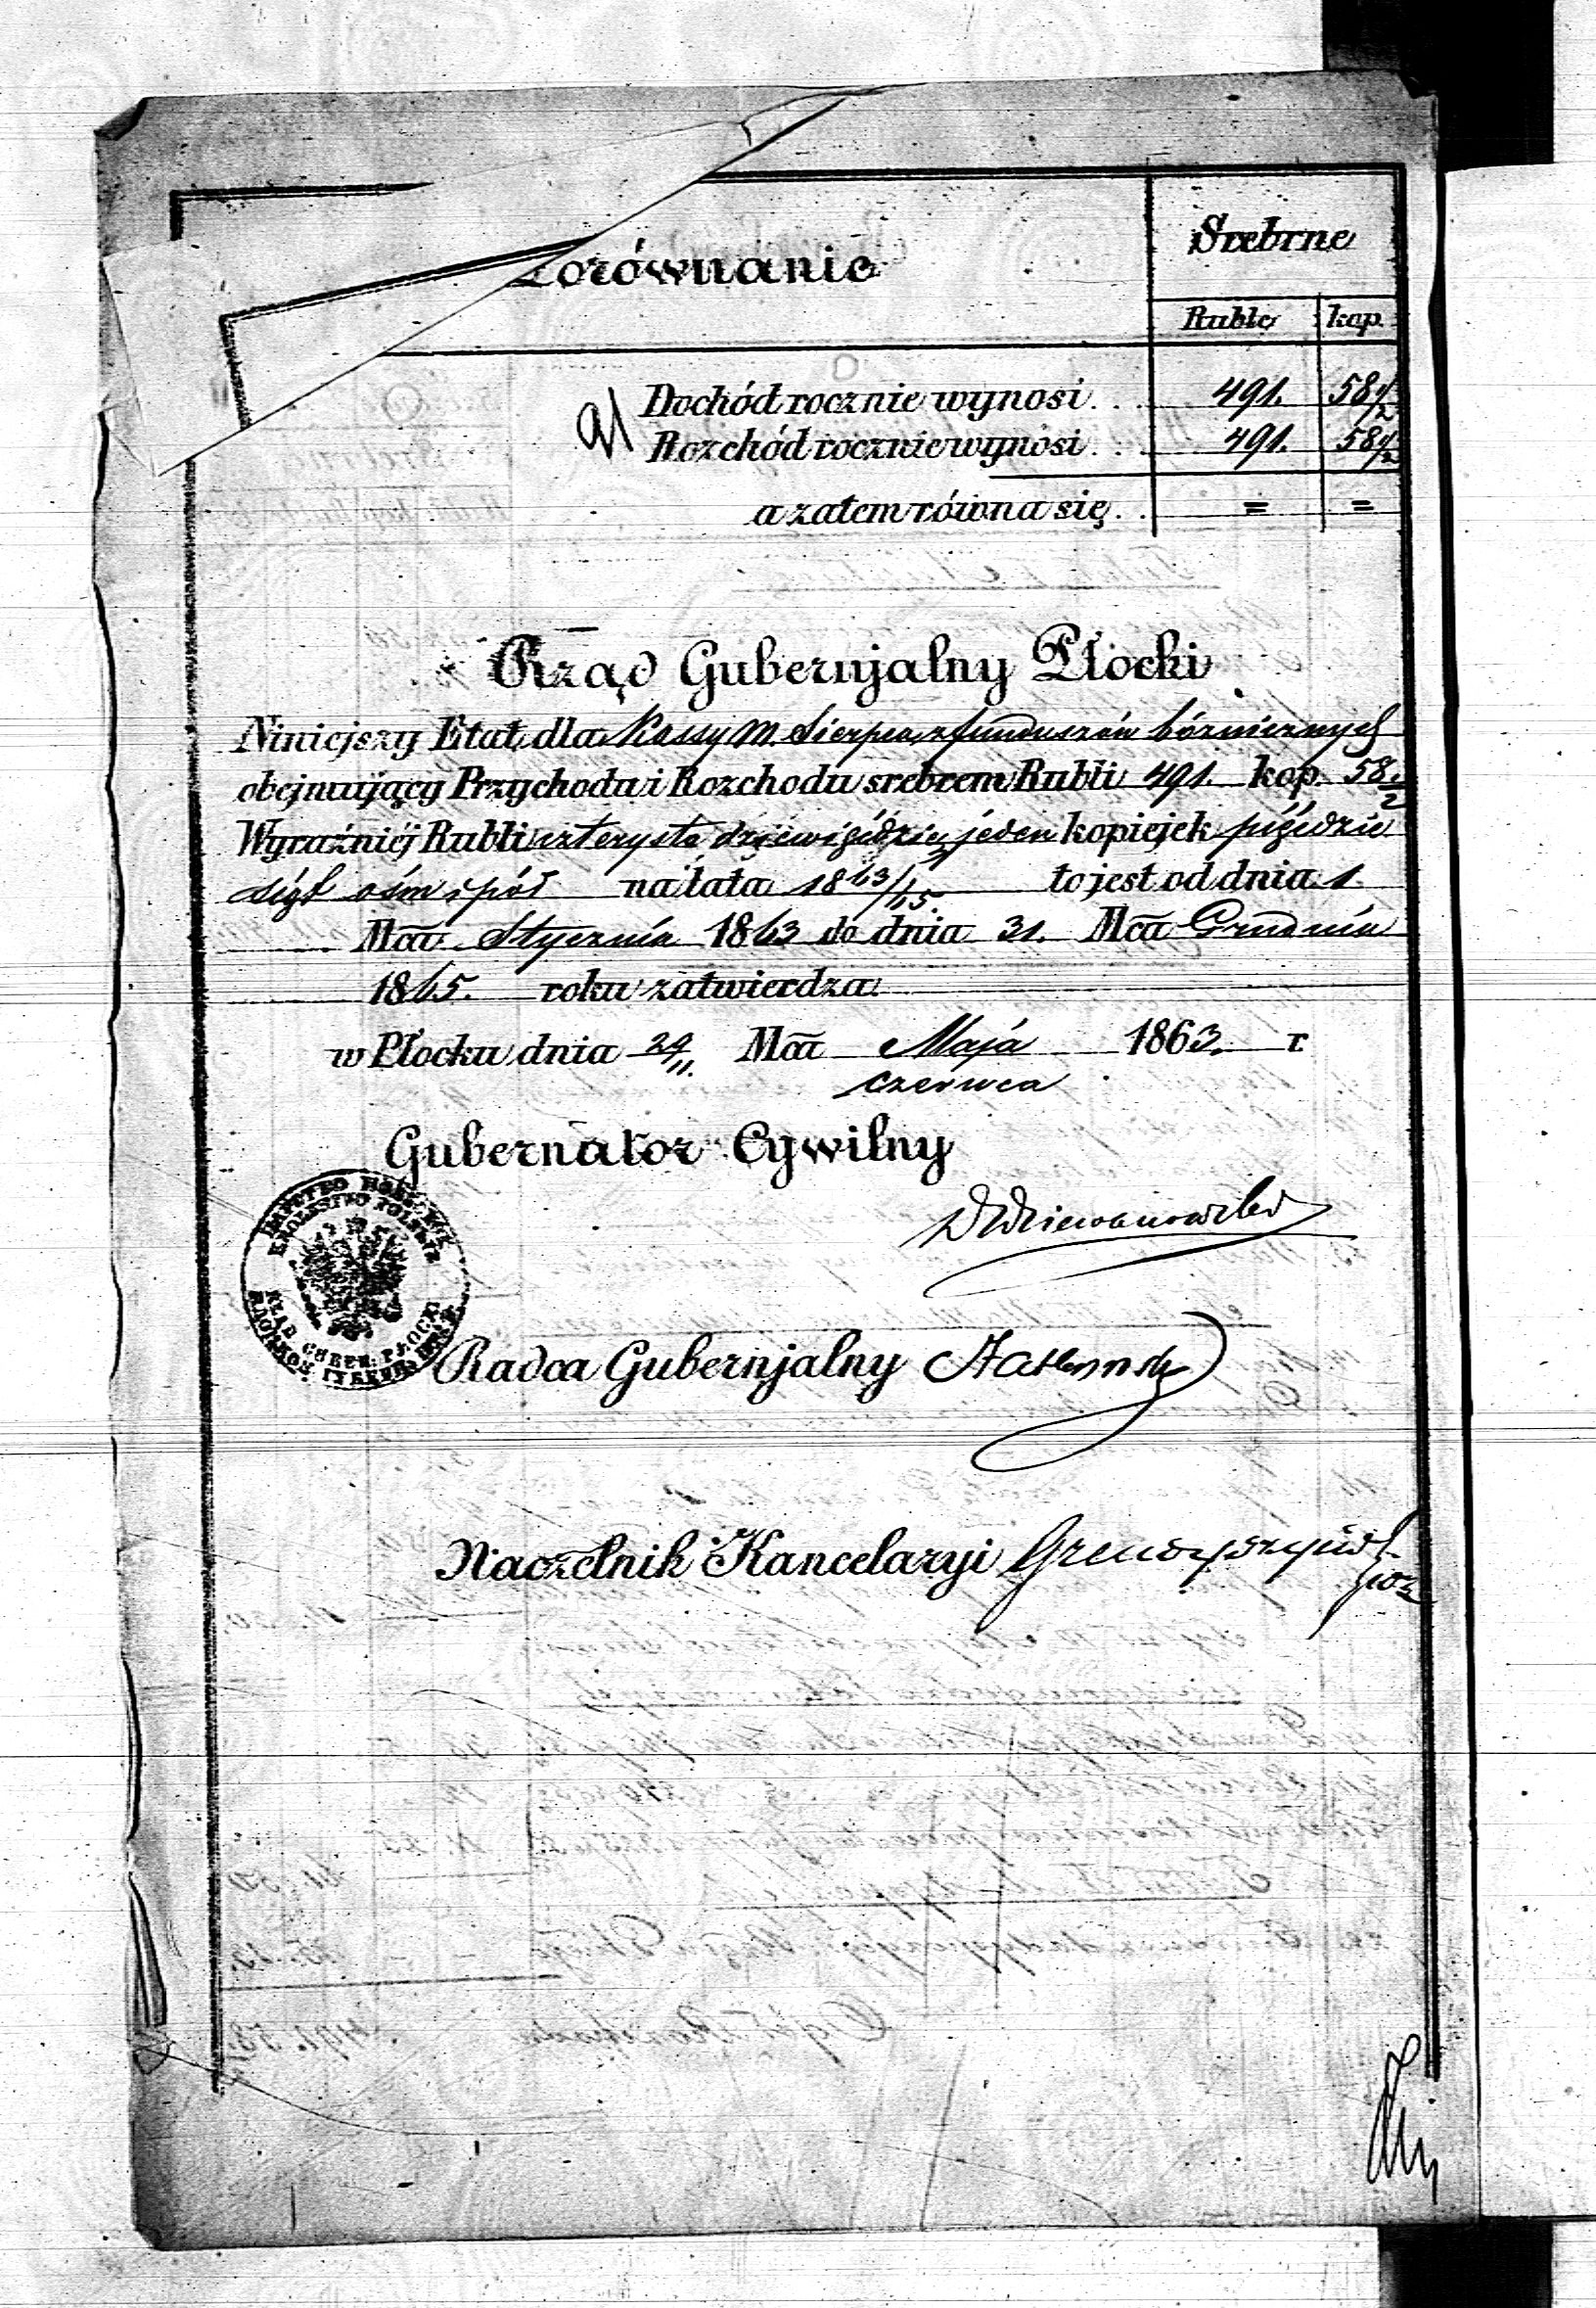 Porównanie
Srebrne
Ruble kop.
Dochód rocznie wynosi . . 491. 58 1/2
Rozchód rocznie wynosi . . 491. 58 1/2
a zatem równa się . . = =
Rząd Gubernjalny Płocki
Niniejszy Etat dla Kassy M. Sierpca z funduszów bóżnicznych
obejmujący Przychodu i Rozchodu srebrem Rubli 491. kop. 58 1/2
Wyraźniéj Rubli czterysta dziewięćdziesiąt jeden kopiejek pięćdzie
siąt ośm i pół na lata 1863/65. to jest od dnia 1
Mca Stycznia 1863 do dnia 31. Mca Grudnia
1865. roku zatwierdza.
w Płocku dnia 29/11. Mca Maja 1863. r.
Czerwca
Gubernator Cywilny
KRÓLESTWO POLSKIE
RZĄD GUBER: PŁOCKI
Radca Gubernjalny
Naczelnik Kancelaryi